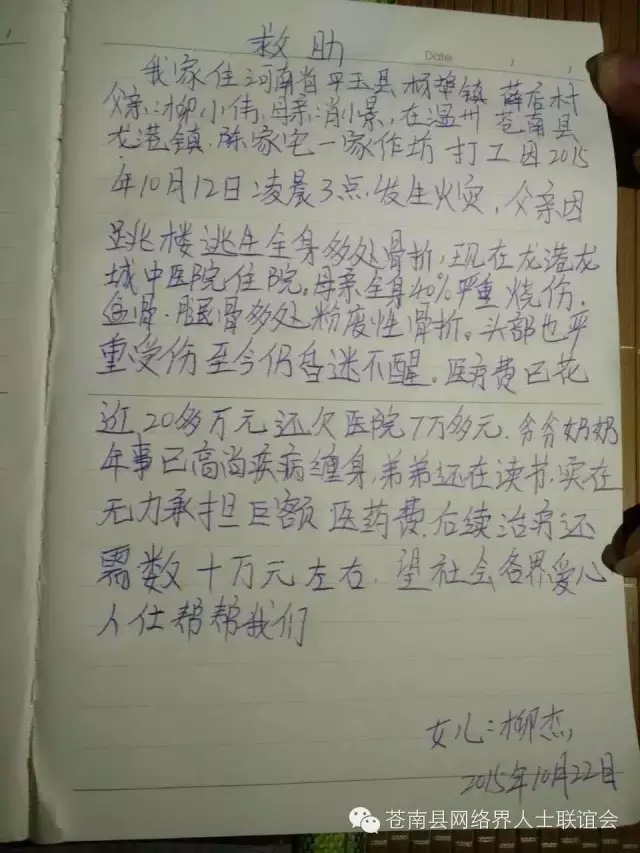 救助
Date
我家住河南省平玉县杨埠镇薛店村
父亲:柳小伟,母亲:肖小景,在温州苍南县
龙港镇.陈家宅一家作坊打工因2015
年10月12日凌晨3点.发生火灾,父亲因
跳楼逃生全身多处骨折,现在龙港龙
城中医院住院。母亲全身40%严重烧伤.
骨.腿骨多处粉废性骨折。头部也严
重受伤至今仍昏迷不醒。医疗费已花
近20多万元还欠医院7万多元.爷爷奶奶
年事已高尚疾病缠身,弟弟还在读书.实在
无力承担巨额医药费.后续治疗还
需数十万元左右.望社会各界爱心
人仕帮帮我们
女儿:柳杰,
2015年10月22日
苍南县网络界人士联谊会